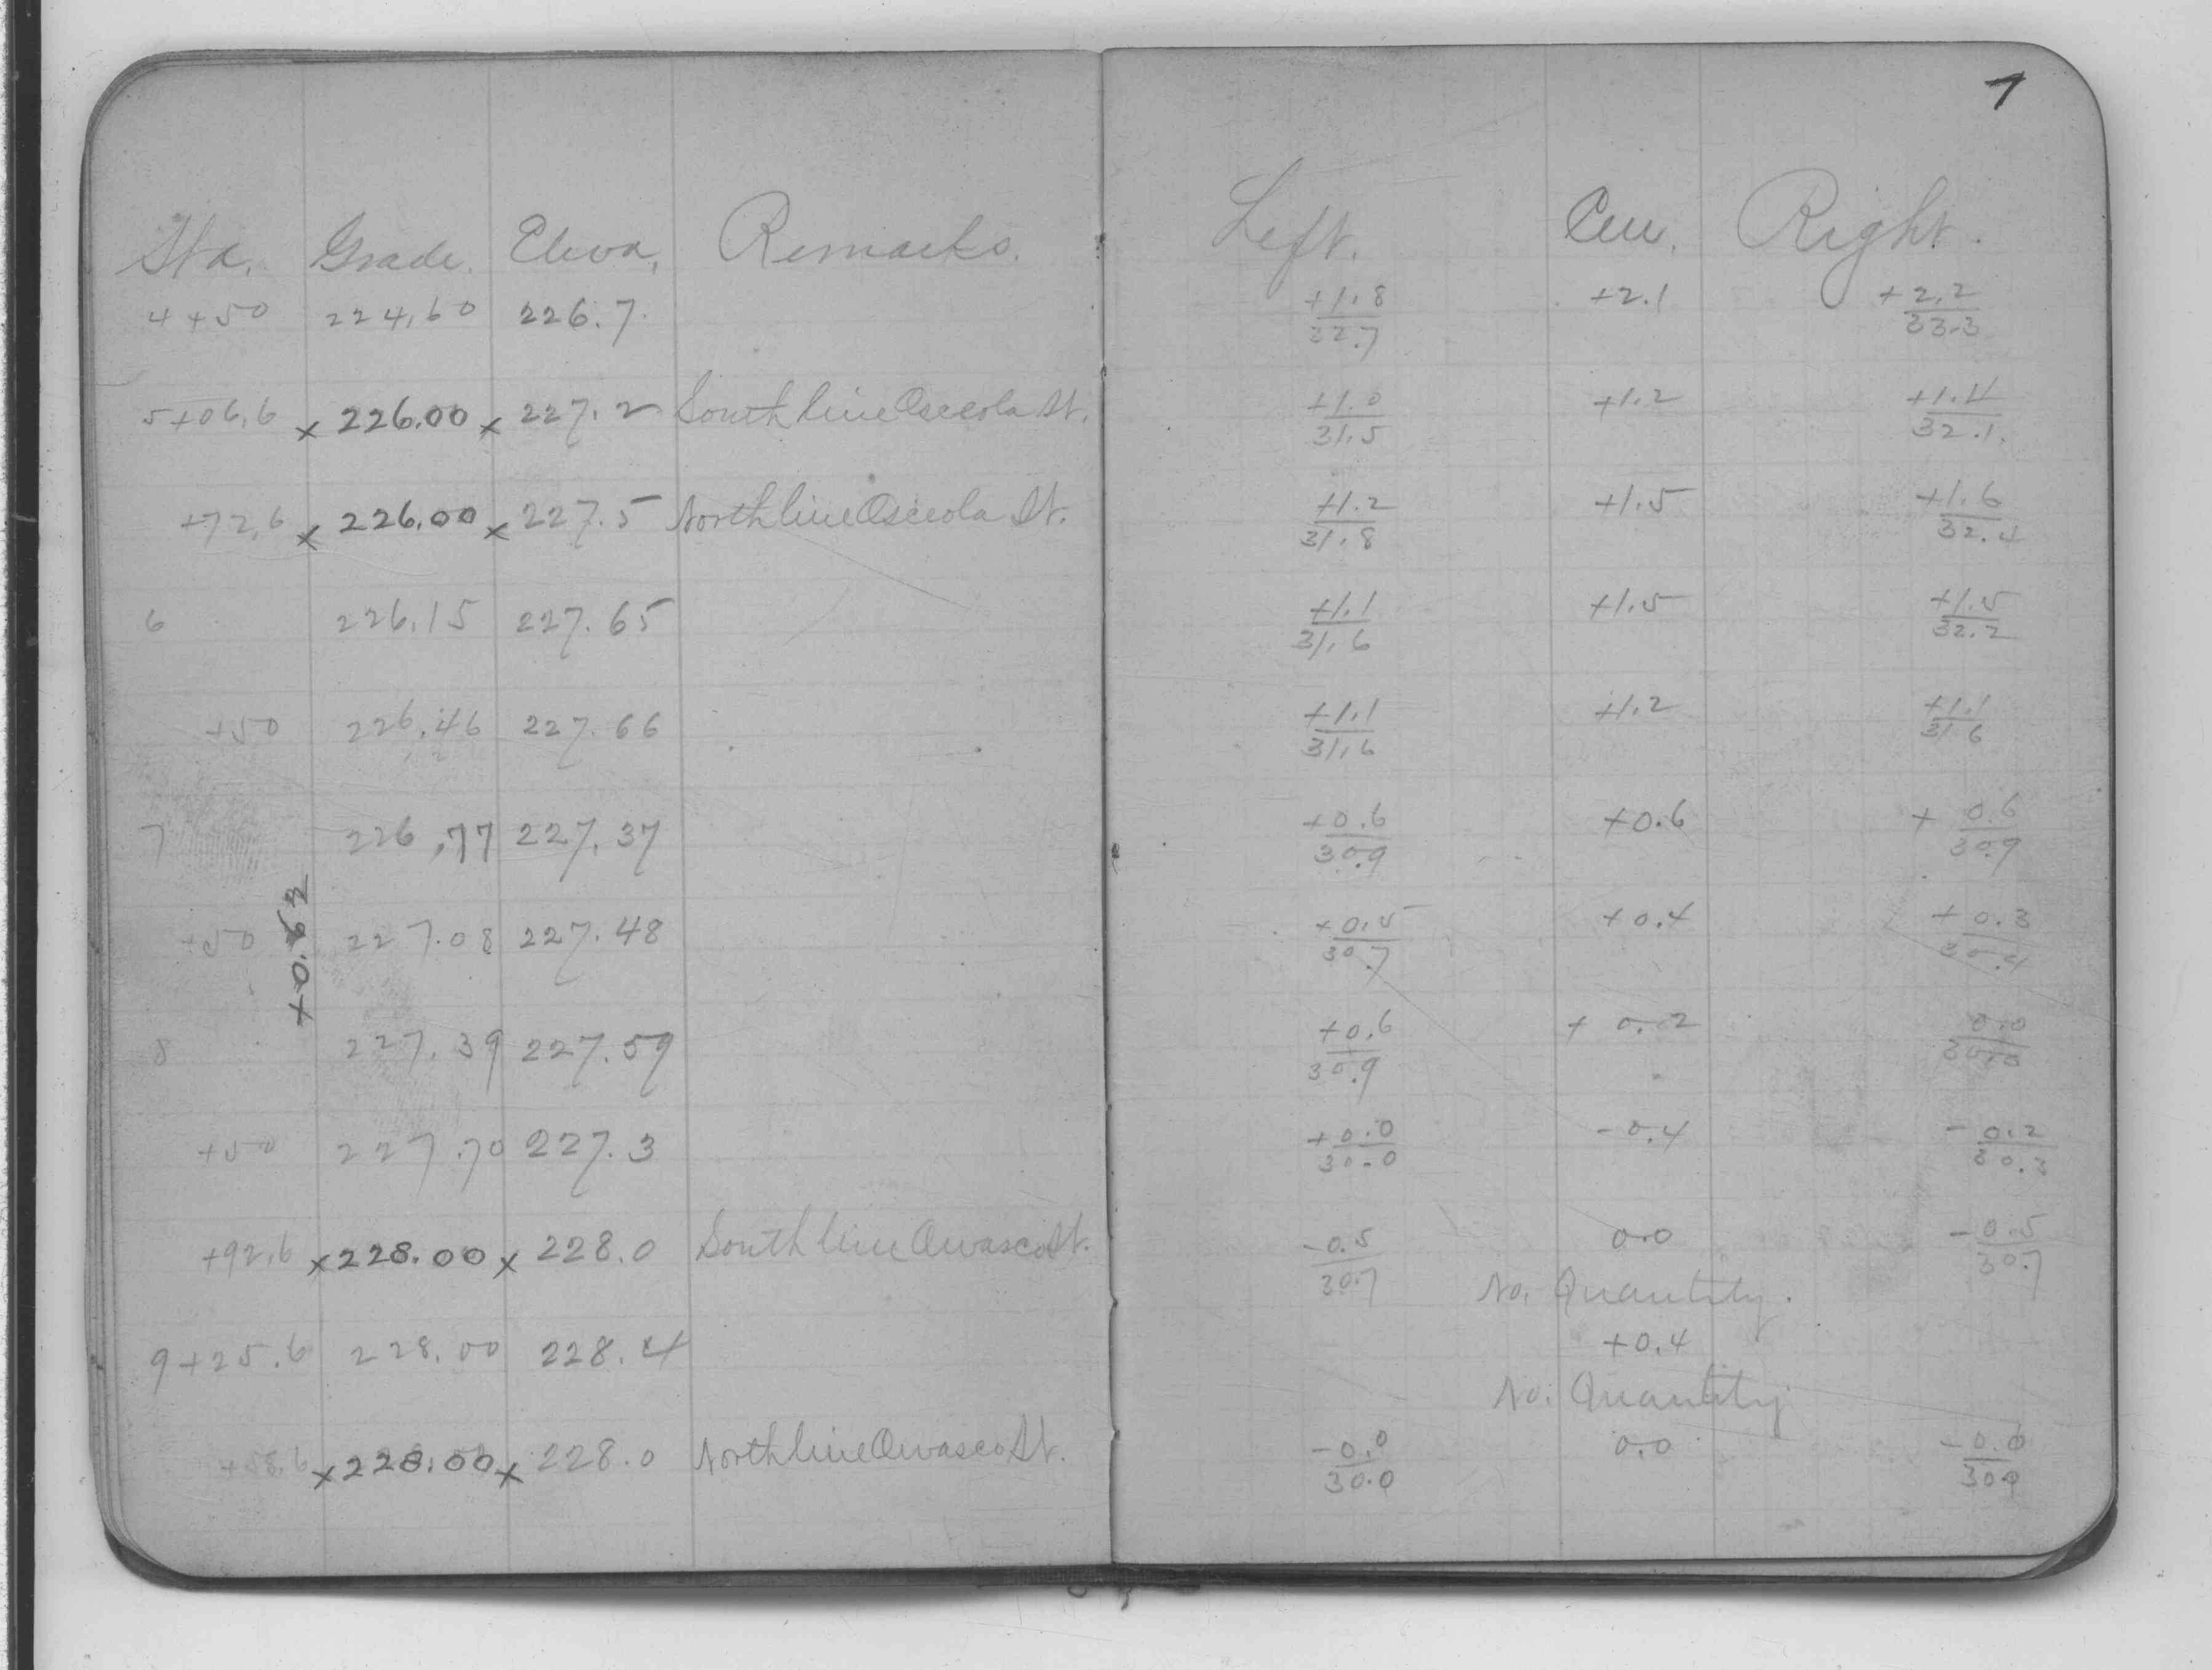 7
Sta. Grade. Eleva. Remarks. Left. Cen. Right.
4+50 224.60 226.7 +1.8/32.7 +2.1 +2.2/33.3
5+06.6 x 226.00 x 227.2 South line Osceola St. +1.0/31.5 +1.2 +1.4/32.1
+72.6 x 226.00 x 227.5 North line Osceola St. +1.2/31.8 +1.5 +1.6/32.4
6 226.15 227.65 +1.1/31.6 +1.5 +1.5/32.2
+50 226.46 227.66 +1.1/31.6 +1.2 +1.1/31.6
7 226.77 227.37 +0.6/30.9 +0.6 +0.6/30.9
+0.62
+50 227.08 227.48 +0.5/30.7 +0.4 +0.3/30.4
8 227.39 227.59 +0.6/30.9 +0.2 0.0/30.0
+50 227.70 227.3 +0.0/30.0 -0.4 -0.2/30.3
+92.6 x 228.00 x 228.0 South line Owasco St. -0.5/30.7 0.0 -0.5/30.7
No. Quantity.
9+25.6 228.00 228.4 +0.4
No. Quantity.
+58.6 x 228.00 x 228.0 North line Owasco St. -0.0/30.0 0.0 -0.0/30.0